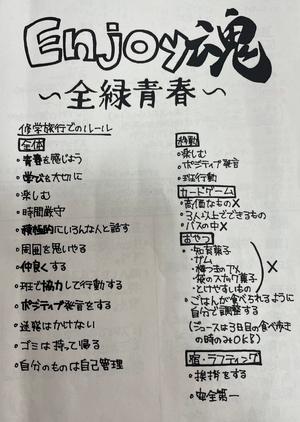 Enjoy魂
〜全緑青春〜
修学旅行でのルール
全体
・青春を感じよう
・学びを大切に
・楽しむ
・時間厳守
・積極的にいろんな人と話す
・周囲を思いやる
・仲良くする
・班で協力して行動する
・ポジティブ発言をする
・迷惑はかけない
・ゴミは持って帰る
・自分のものは自己管理
移動
・楽しむ
・ポジティブ発言
・班行動
カードゲーム
・高価なものX
・3人以上でできるもの
・バスの中X
おやつ
・知育菓子
・ガム
・袋のスナック菓子
・とけやすいもの
X
・ごはんが食べられるように
自分で調整する
(ジュースは3日目の食べ歩き
の時のみOK!!)
宿・ラフティング
・挨拶をする
・安全第一